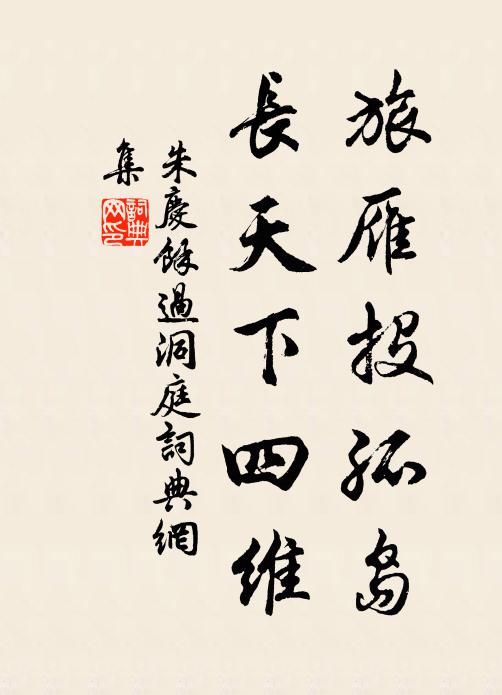 旅雁投孤島
長天下四維
朱慶餘過洞庭詞典網
集
詞典
网印